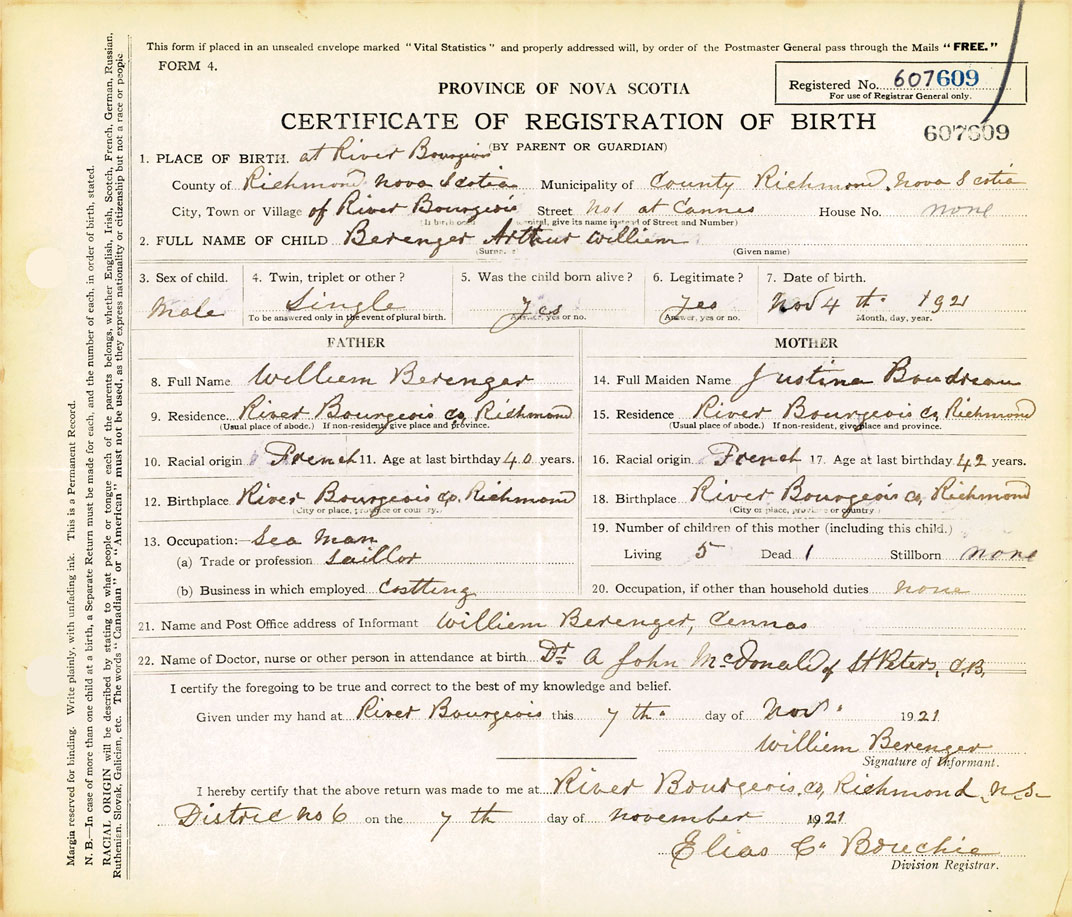 This form if placed in an unsealed envelope marked "Vital Statistics" and properly addressed will, by order of the Postmaster General pass through the Mails "FREE."
FORM 4.
Registered No. 607609
For use of Registrar General only.
PROVINCE OF NOVA SCOTIA
CERTIFICATE OF REGISTRATION OF BIRTH
607609
(BY PARENT OR GUARDIAN)
1. PLACE OF BIRTH. at River Bourgeois
County of Richmond Nova Scotia Municipality of County Richmond, Nova Scotia
City, Town or Village of River Bourgeois Street not at Cannes House No. none
give its name instead of Street and Number)
2. FULL NAME OF CHILD Berenger Arthur William
(Surname) (Given name)
3. Sex of child. 4. Twin, triplet or other? 5. Was the child born alive? 6. Legitimate? 7. Date of birth.
Male Single Yes Yes Nov 4 th. 1921
To be answered only in the event of plural birth. Answer, yes or no. (Answer, yes or no. Month, day, year.
FATHER MOTHER
8. Full Name William Berenger 14. Full Maiden Name Justina Boudreau
9. Residence River Bourgeois Co, Richmond 15. Residence River Bourgeois Co, Richmond
(Usual place of abode.) If non-resident, give place and province. (Usual place of abode.) If non-resident, give place and province.
10. Racial origin French 11. Age at last birthday 40 years. 16. Racial origin French 17. Age at last birthday 42 years.
12. Birthplace River Bourgeois Co. Richmond 18. Birthplace River Bourgeois Co, Richmond
(City or place, province or country.) (City or place, province or country)
13. Occupation:— Sea Man 19. Number of children of this mother (including this child.)
(a) Trade or profession Saillor Living 5 Dead 1 Stillborn none
(b) Business in which employed Costting 20. Occupation, if other than household duties none
21. Name and Post Office address of Informant William Berenger, Cennas
22. Name of Doctor, nurse or other person in attendance at birth Dr. A John McDonald of St Peters, C.B.
I certify the foregoing to be true and correct to the best of my knowledge and belief.
Given under my hand at River Bourgeois this 7 th. day of Nov. 1921
William Berenger
Signature of Informant.
I hereby certify that the above return was made to me at River Bourgeois, Co, Richmond, N.S.
Distric no 6 on the 7 th day of November 1921
Elias C. Bouchie
Division Registrar.
Margin reserved for binding. Write plainly, with unfading ink. This is a Permanent Record.
N. B.—In case of more than one child at a birth, a Separate Return must be made for each, and the number of each, in order of birth, stated.
RACIAL ORIGIN will be described by stating to what people or tongue each of the parents belongs, whether English, Irish, Scotch, French, German, Russian,
Ruthenian, Slovak, Galician, etc. The words "Canadian" or "American" must not be used, as they express nationality or citizenship but not a race or people